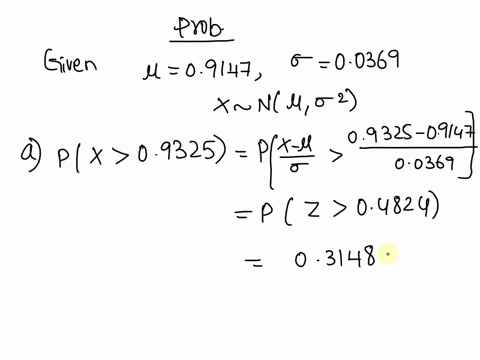 Prob.
Given μ = 0.9147, σ = 0.0369
X ~ N(μ, σ²)
a) P(X > 0.9325) = P[X-μ/σ > 0.9325-0.9147/0.0369]
= P(Z > 0.4824)
= 0.3148